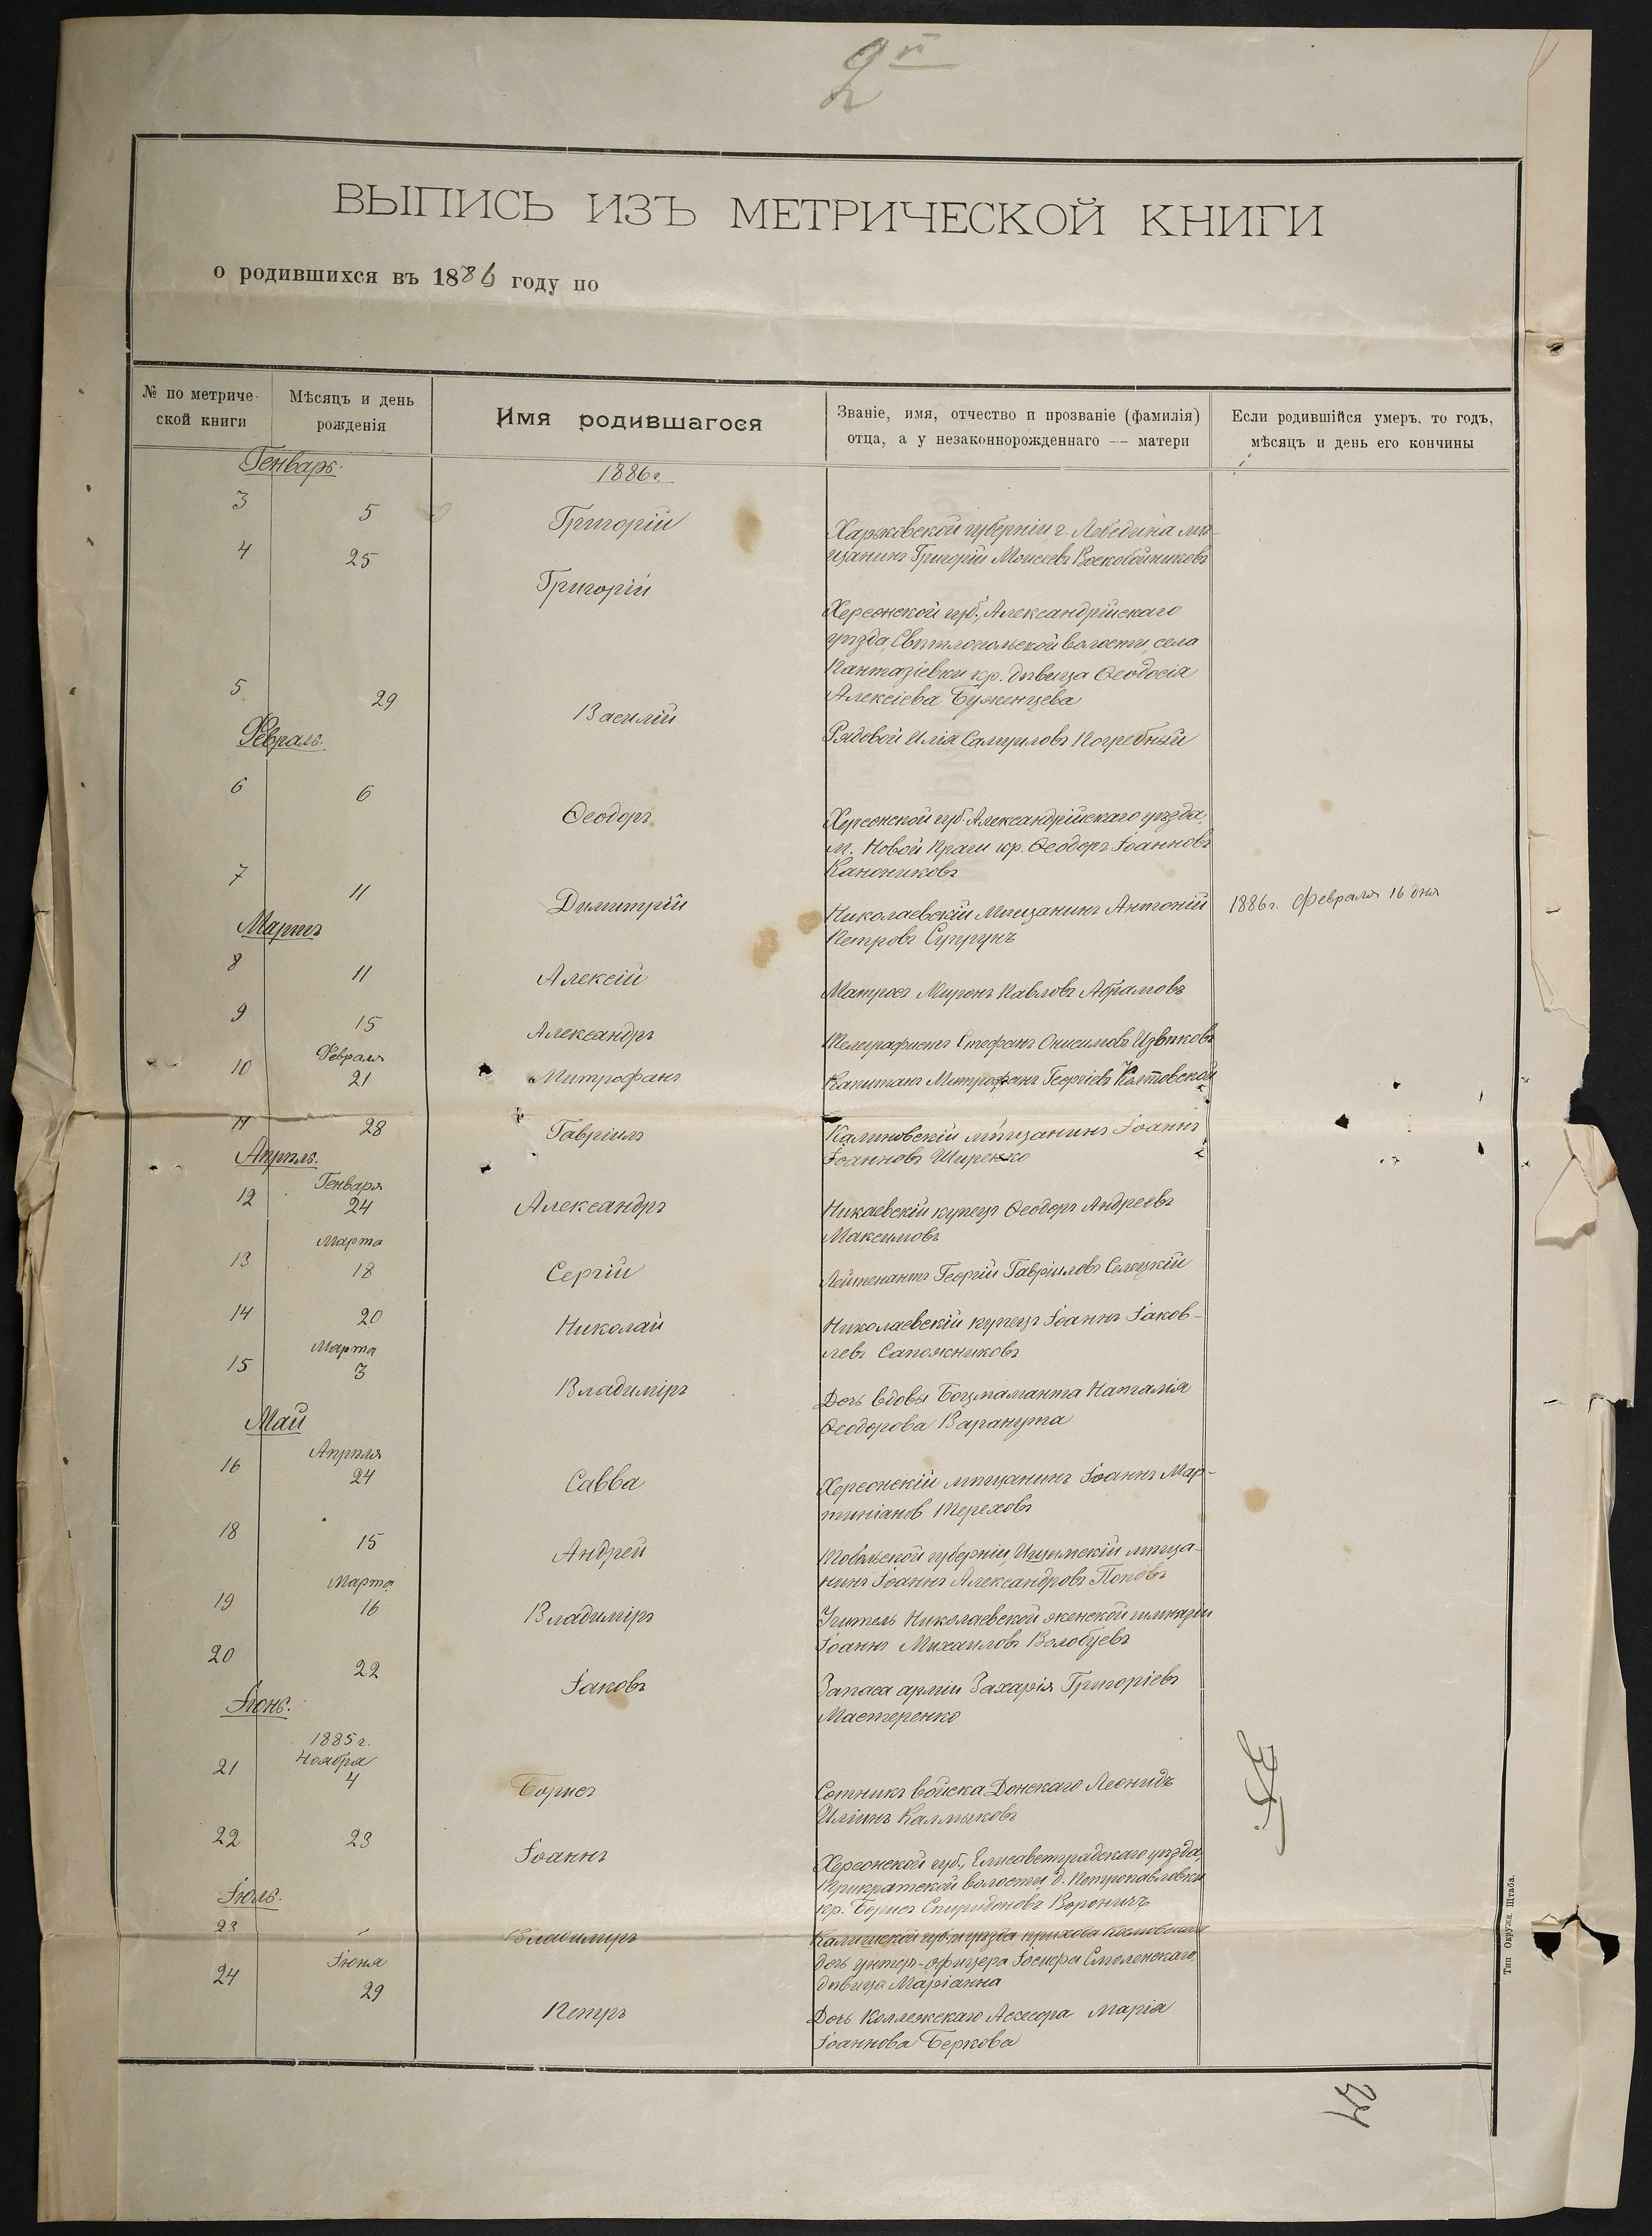 2й
ВЫПИСЬ ИЗЪ МЕТРИЧЕСКОЙ КНИГИ
о родившихся въ 1886 году по
№ по метриче-
ской книги
Мѣсяцъ и день
рожденія
Имя родившагося
Званіе, имя, отчество и прозваніе (фамилія)
отца, а у незаконнорожденнаго — матери
Если родившійся умеръ, то годъ,
мѣсяцъ и день его кончины
Генварь.
1886 г.
3 5 Григорій Харьковской губерніи г. Лебедина мѣ-
щанинъ Григорій Моисеевъ Воскобойниковъ
4 25 Григорій Херсонской губ., Александрійскаго
уѣзда, Свѣтлопольской волости, села
Пантазіевки кр. дѣвица Ѳеодосія
Алексіева Буженцева
5 29 Василій Рядовой Илія Самуиловъ Погребный
Февраль.
6 6 Ѳеодоръ Херсонской губ. Александрійскаго уѣзда,
м. Новой Праги кр. Ѳеодоръ Іоанновъ
Канониковъ
7 11 Димитрій Николаевскій Мѣщанинъ Антоній 1886 г. Февраля 16 дня
Петровъ Супрунъ
Мартъ
8 11 Алексій Матросъ Миронъ Павловъ Абрамовъ
9 15 Александръ Телеграфистъ Стефанъ Онисимовъ Цвѣтковъ
Февраля
10 21 Митрофанъ Капитанъ Митрофанъ Георгіевъ Колтовской
11 28 Гавріилъ Калиновскій мѣщанинъ Іоаннъ
Іоанновъ Ширенко
Апрѣль.
Генваря
12 24 Александръ Никаевскій купецъ Ѳеодоръ Андреевъ
Максимовъ
Марта
13 18 Сергій Лейтенантъ Георгій Гавріиловъ Селецкій
14 20 Николай Николаевскій купецъ Іоаннъ Іаков-
левъ Сапожниковъ
Марта
15 3 Владиміръ Дочь вдовы Боцманманта Наталія
Ѳеодорова Варанута
Май
Апрѣля
16 24 Савва Херсонскій мѣщанинъ Іоаннъ Мар-
тиніановъ Тереховъ
18 15 Андрей Тобольской губерніи, Ишимскій мѣща-
нинъ Іоаннъ Александровъ Поповъ
Марта
19 16 Владиміръ Учитель Николаевской женской гимназіи
Іоаннъ Михаиловъ Волобуевъ
20 22 Іаковъ Запаса арміи Захарія Григоріевъ
Мастеренко
Іюнь.
1885 г.
Ноября
21 4 Борисъ Сотникъ войска Донскаго Леонидъ
Иліинъ Калмыковъ
22 23 Іоаннъ Херсонской губ., Елисаветградскаго уѣзда,
Прикратской волости, д. Петропавловки
кр. Борисъ Спиридоновъ Вороничъ
Іюль.
23 Владиміръ Калишской губ. и уѣзда прихода
дочь унтеръ-офицера Іосифа Смоленскаго,
дѣвица Маріанна
Іюня
24 29 Петръ Дочь Коллежскаго Ассесора Марія
Іоаннова Беркова
Тип. Окружн. Штаба.